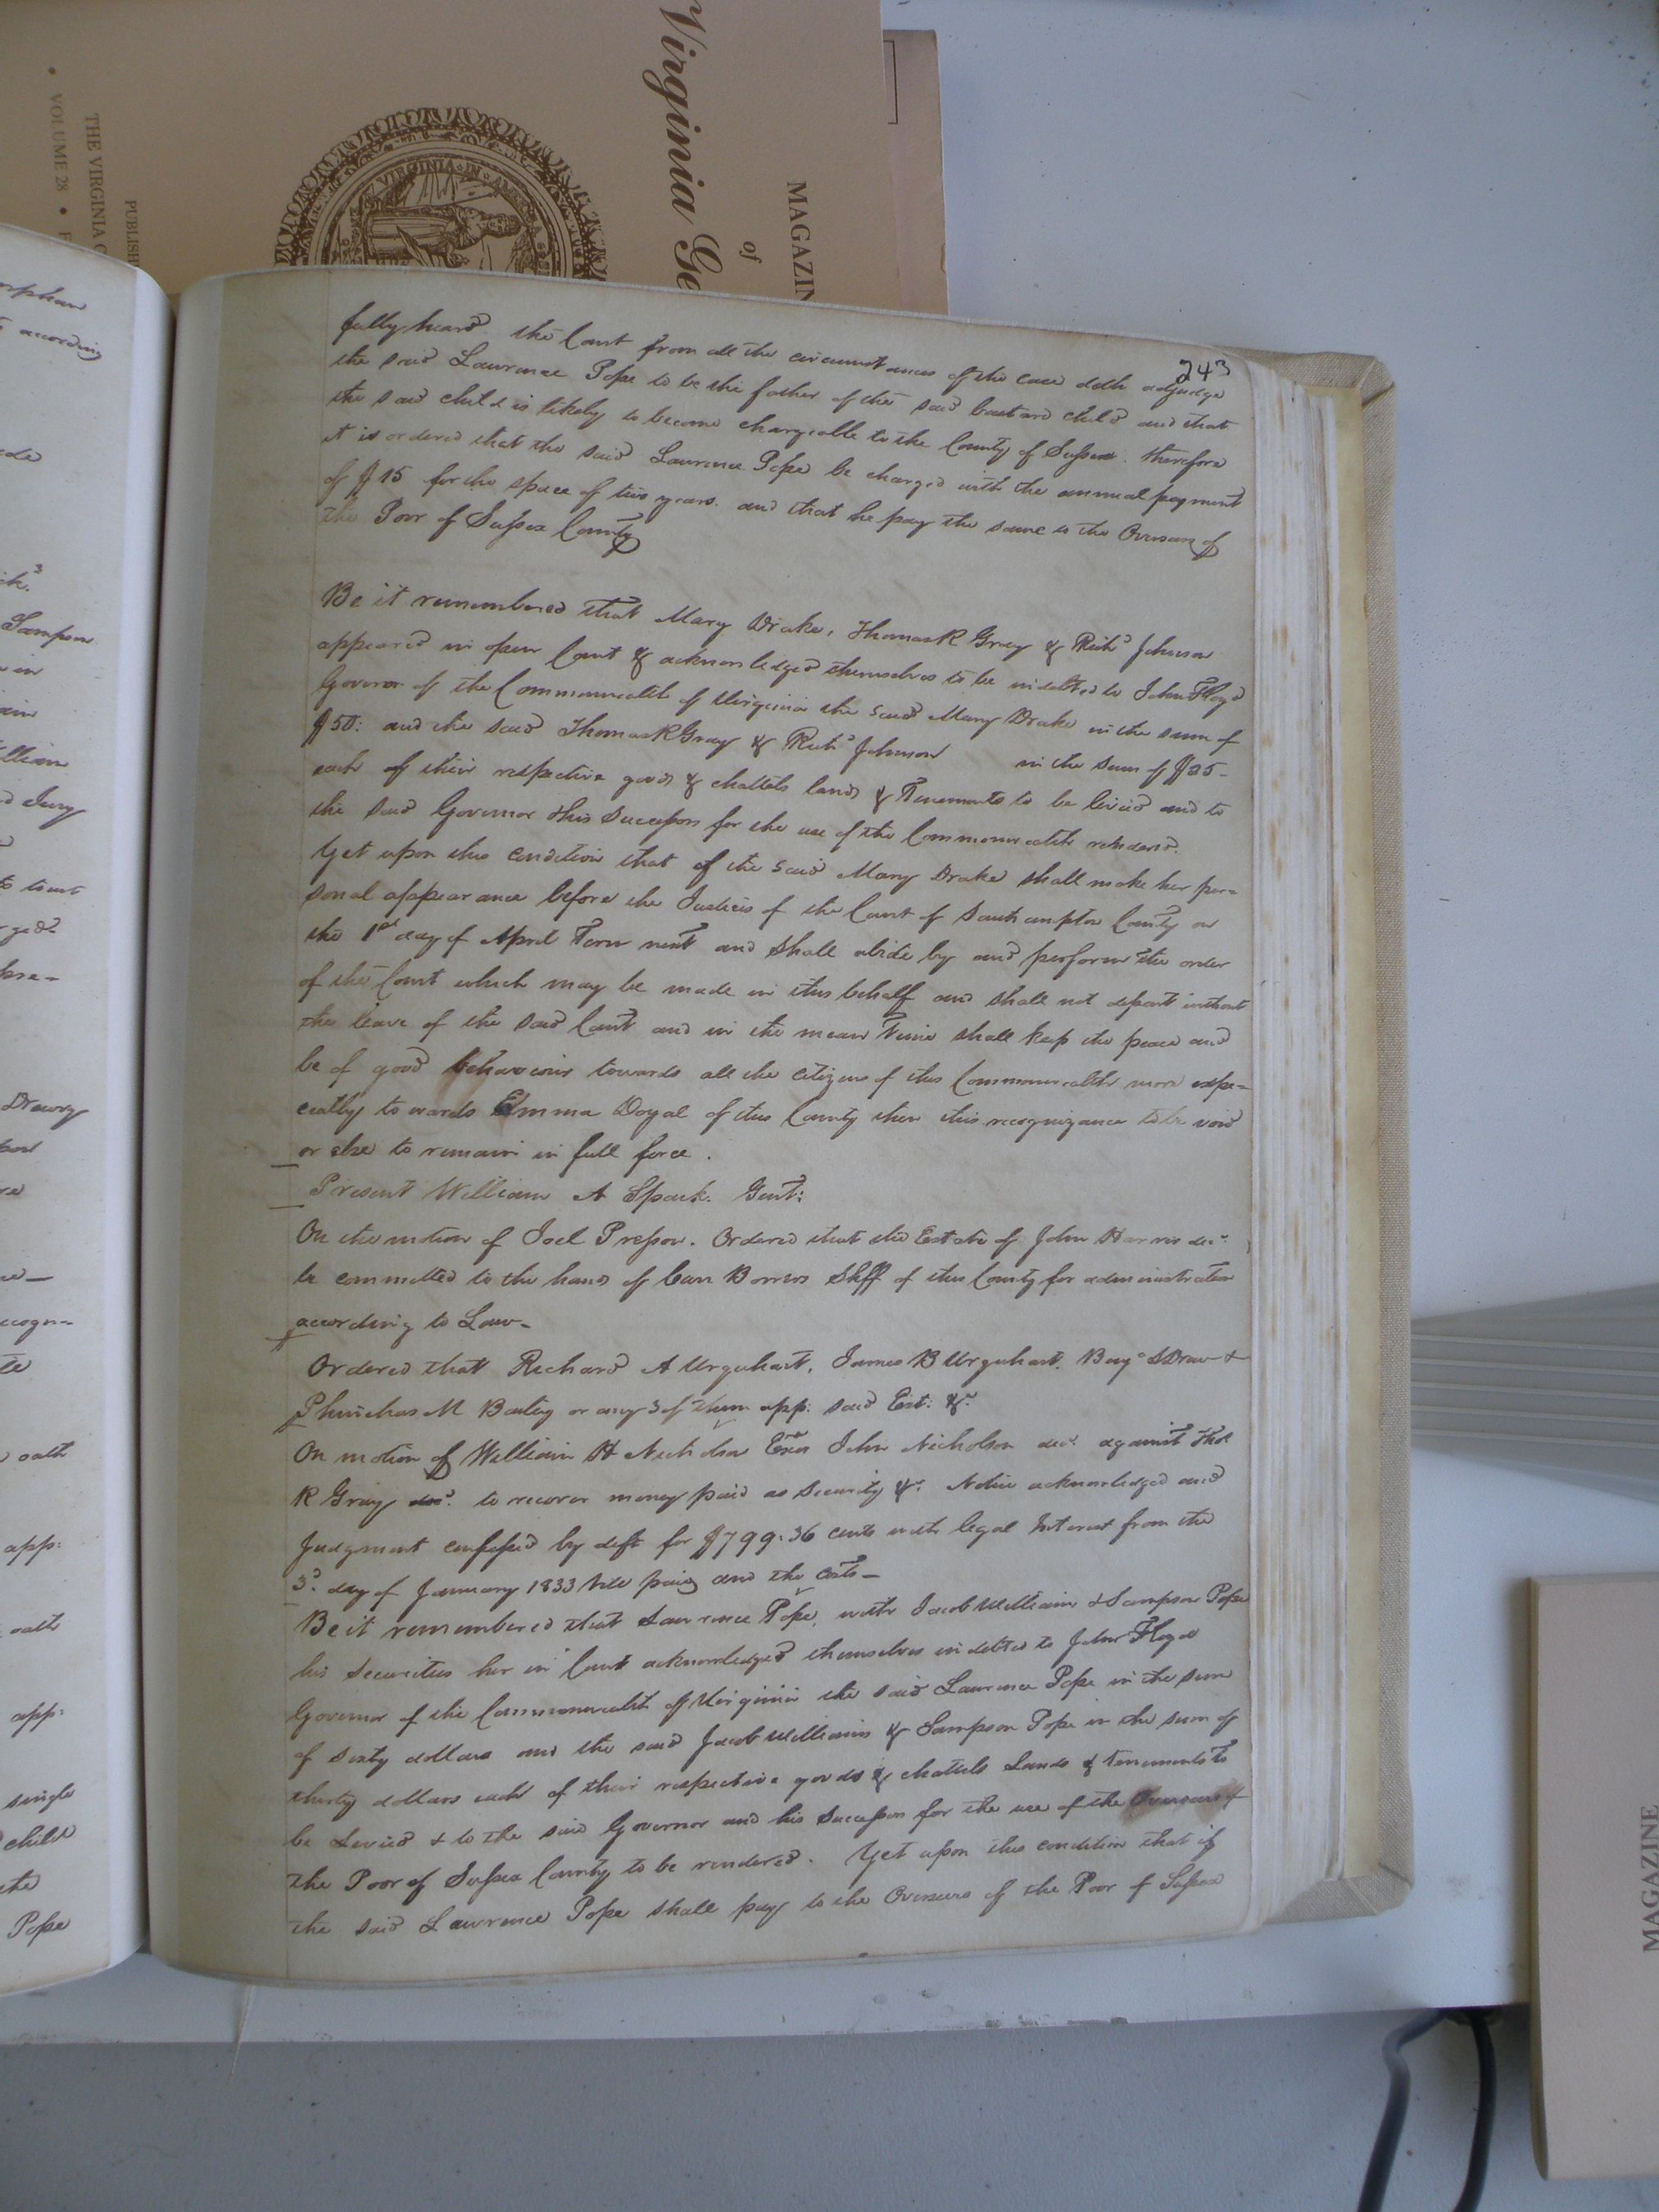 Virginia Ge
MAGAZIN
of
VIRGINIA IN
PUBLISH
THE VIRGINIA G
• VOLUME 28 •
243
fully heard the Court from all the circumstances of the case doth adjudge
the said Laurence Pope to be the father of the said bastard child and that
the said child is likely to become chargeable to the County of Sussex. therefore
it is ordered that the said Laurence Pope be charged with the annual payment
of $15 for the space of two years. and that he pay the same to the Overseers of
the Poor of Sussex County
Be it remembered that Mary Drake, Thomas R Gray & Richd Johnson
appeared in open Court & acknowledged themselves to be indebted to John Floyd
Governor of the Commonwealth of Virginia the said Mary Drake in the sum of
$50: and the said Thomas R Gray & Richd Johnson in the sum of $25-
each of their respective goods & chattels lands & Tenements to be levied and to
the said Governor & his Successors for the use of the Commonwealth rendered.
Yet upon this condition that if the said Mary Drake shall make her per=
sonal appearance before the Justices of the Court of Southampton County on
the 1st day of April Term next and shall abide by and perform the order
of the Court which may be made in this behalf and shall not depart without
the leave of the said Court and in the mean Time shall keep the peace and
be of good behaviour towards all the citizens of this Commonwealth more espe=
cially towards Emma Doyal of this County then this recognizance to be void
or else to remain in full force.
Present William A Spark. Gent:
On the motion of Joel Presson. Ordered that the Estate of John Harris decd.
be committed to the hands of Carr Bowers Shff of this County for administration
according to Law-
Ordered that Richard A Urquhart, James B Urquhart, Benja S Drew &
Phinehas M Bailey or any 3 of them app: said Est: &c
On motion of William H Nicholson Exor John Nicholson decd. against Thos
R Gray to recover money paid as Security &c. Notice acknowledged and
Judgment confessed by deft for $799.36 cents with legal Interest from the
3d. day of January 1833 till paid and the Costs-
Be it remembered that Lawrence Pope, with Jacob Williams & Sampson Pope
his Securities her in Court acknowledged themselves indebted to John Floyd
Governor of the Commonwealth of Virginia the said Laurence Pope in the sum
of sixty dollars and the said Jacob Williams & Sampson Pope in the sum of
thirty dollars each of their respective goods & chattels Lands & Tenements to
be Levied & to the said Governor and his Successors for the use of the Overseers of
the Poor of Sussex County to be rendered. Yet upon this condition that if
the said Lawrence Pope shall pay to the Overseers of the Poor of Sussex
orphan
according
Sampson
in
Jury
Drewry
oath
app:
oath
app:
single
child
the
Pope
MAGAZINE